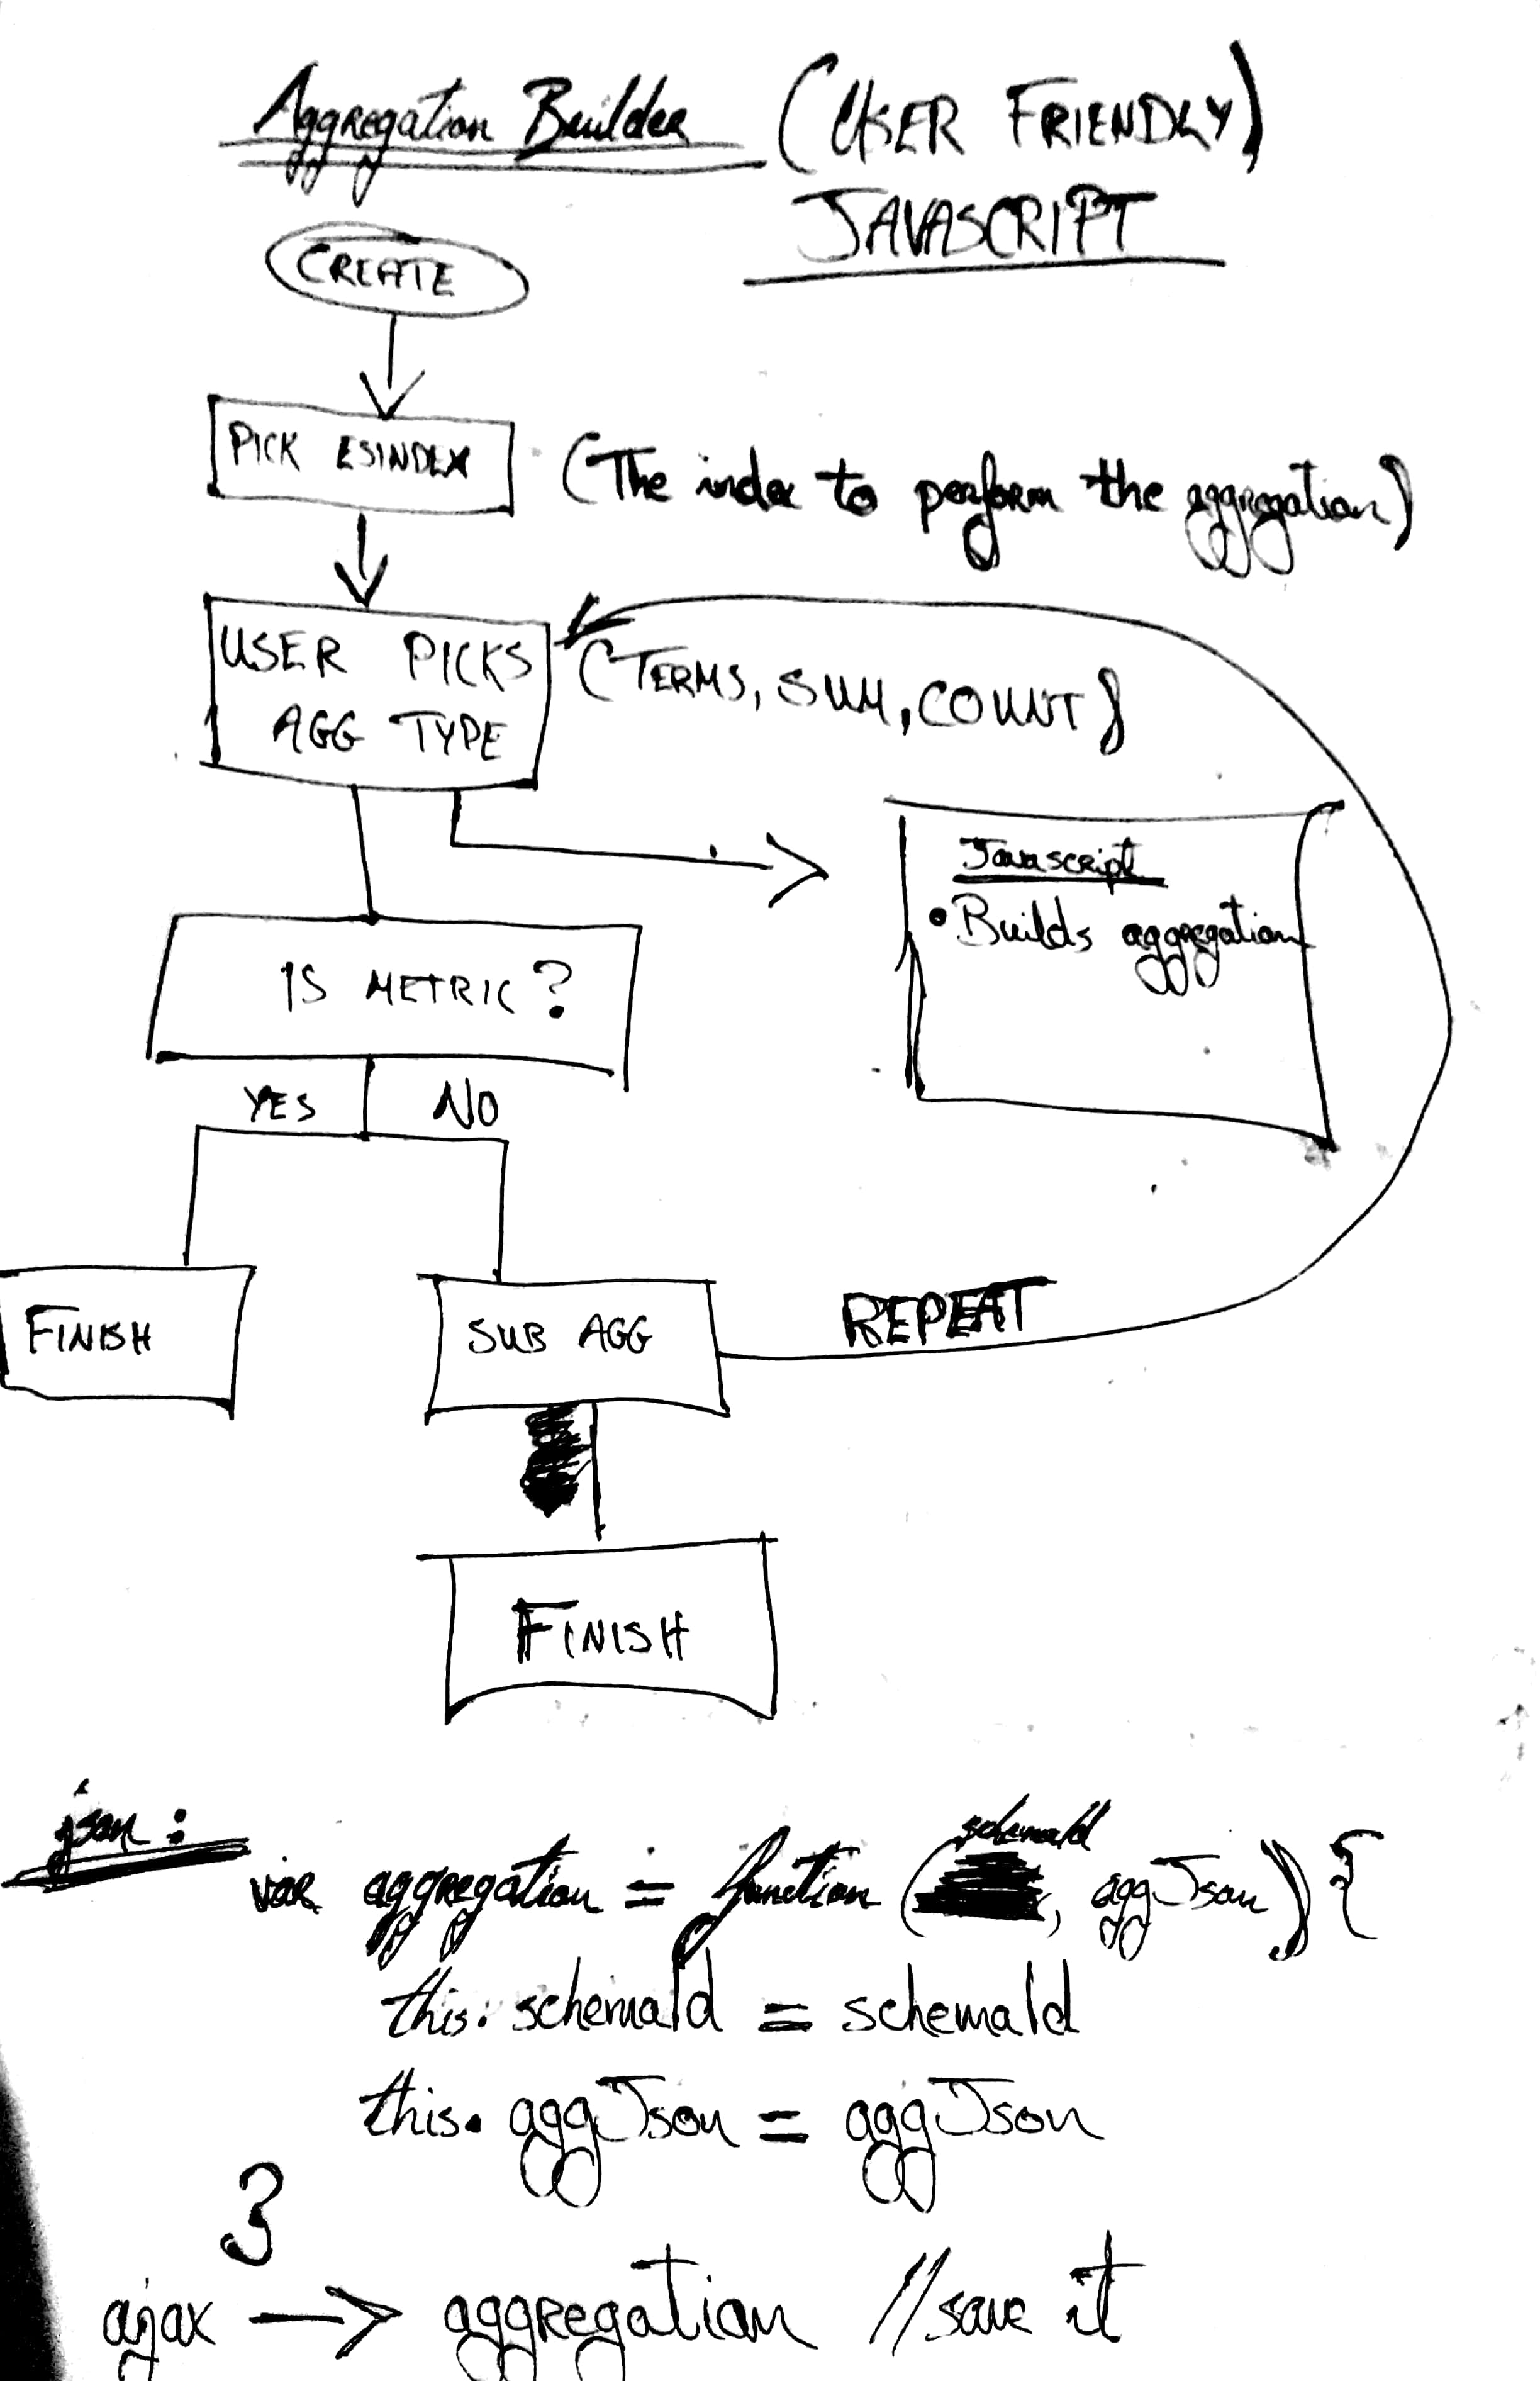 Aggregation Builder (USER FRIENDLY)
JAVASCRIPT
CREATE
PICK ESINDEX (The index to perform the aggregation)
USER PICKS
AGG TYPE
(TERMS, SUM, COUNT)
Javascript
• Builds aggregation
IS METRIC?
YES NO
FINISH
SUB AGG
REPEAT
FINISH
json:
schemaId
var aggregation = function ( , aggJson) {
this. schemaId = schemaId
this. aggJson = aggJson
}
ajax -> aggregation //save it